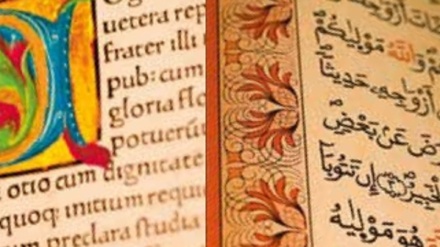 uetera rep
frater illi
pub: cum
gloria flo
potuerūt
otio cum dignitate
quoq; initium requi
m preclara studia
وَاللَّهُ مَوْلِيكُمْ
أَزْوَاجِهِ حَدِيثًا
عَنْ بَعْضٍ
إِنْ تَتُوبَا
هُوَ مَوْلِيهُ